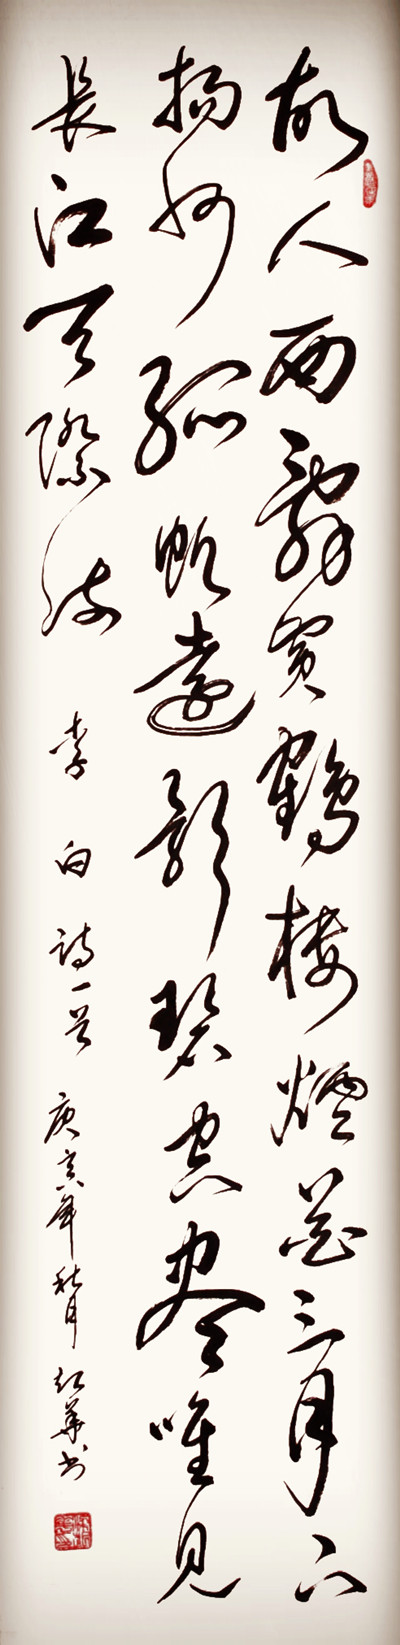 故人西辭黃鶴樓煙花三月下
揚州孤帆遠影碧空盡唯見
長江天際流 李白詩一首 庚寅年秋月 紅華書